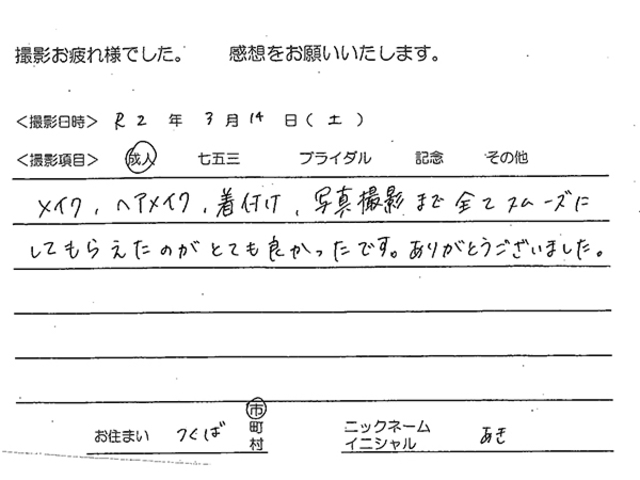 撮影お疲れ様でした。 感想をお願いいたします。
<撮影日時> R2 年 3月14日(土)
<撮影項目> 成人 七五三 ブライダル 記念 その他
メイク、ヘアメイク、着付け、写真撮影まで全てスムーズに
してもらえたのがとても良かったです。ありがとうございました。
お住まい つくば 市町村 ニックネーム イニシャル あき